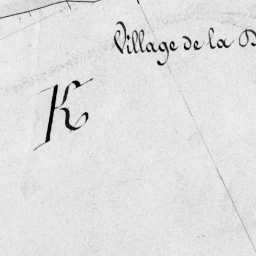 Village de la
K